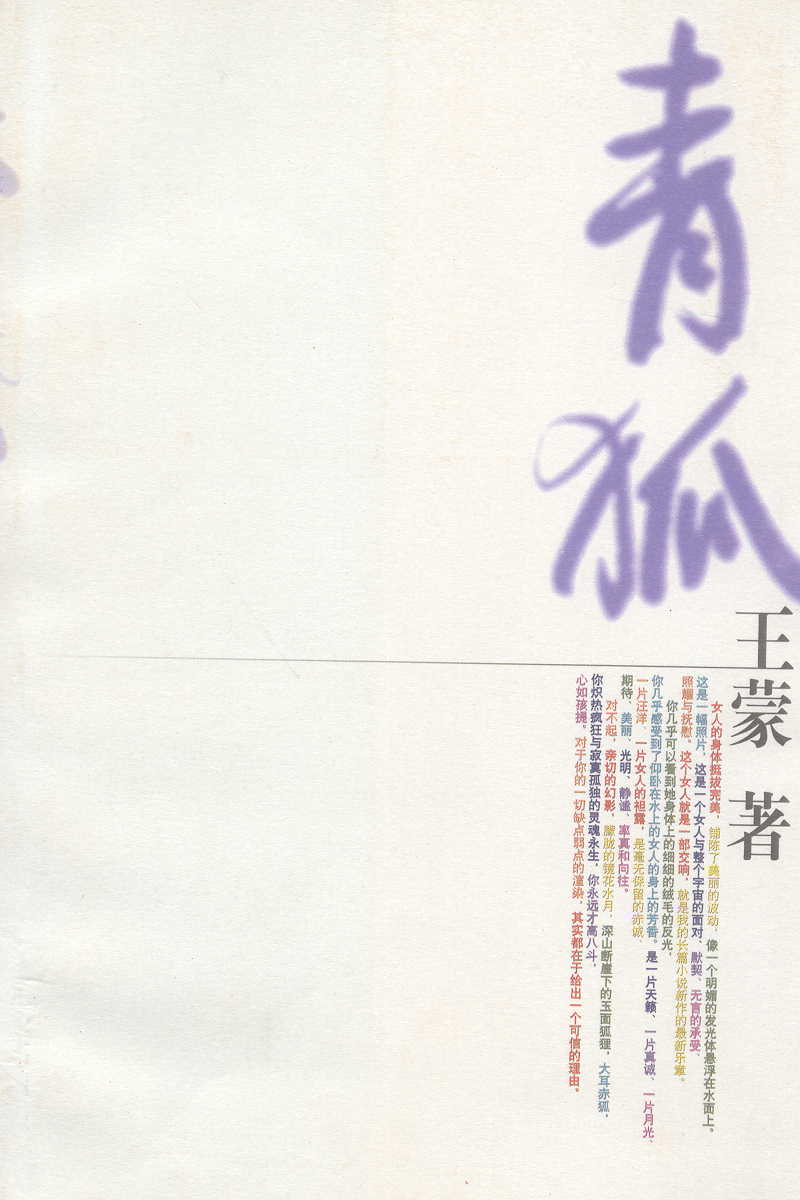 青狐
王蒙 著
女人的身体挺拔完美，铺陈了美丽的波动，像一个明媚的发光体悬浮在水面上。
这是一幅照片，这是一个女人与整个宇宙的面对、默契、无言的承受、
照耀与抚慰。这个女人就是一部交响，就是我的长篇小说新作的最新乐章。
你几乎可以看到她身体上的细细的绒毛的反光，
你几乎感受到了仰卧在水上的女人的身上的芳香。是一片天籁、一片真诚、一片月光、
一片汪洋、一片女人的袒露，是毫无保留的赤诚、
期待、美丽、光明、静谧、率真和向往。
对不起，亲切的幻影，朦胧的镜花水月，深山断崖下的玉面狐狸，大耳赤狐，
你炽热疯狂与寂寞孤独的灵魂永生，你永远才高八斗，
心如孩提。对于你的一切缺点弱点的渲染，其实都在于给出一个可信的理由。